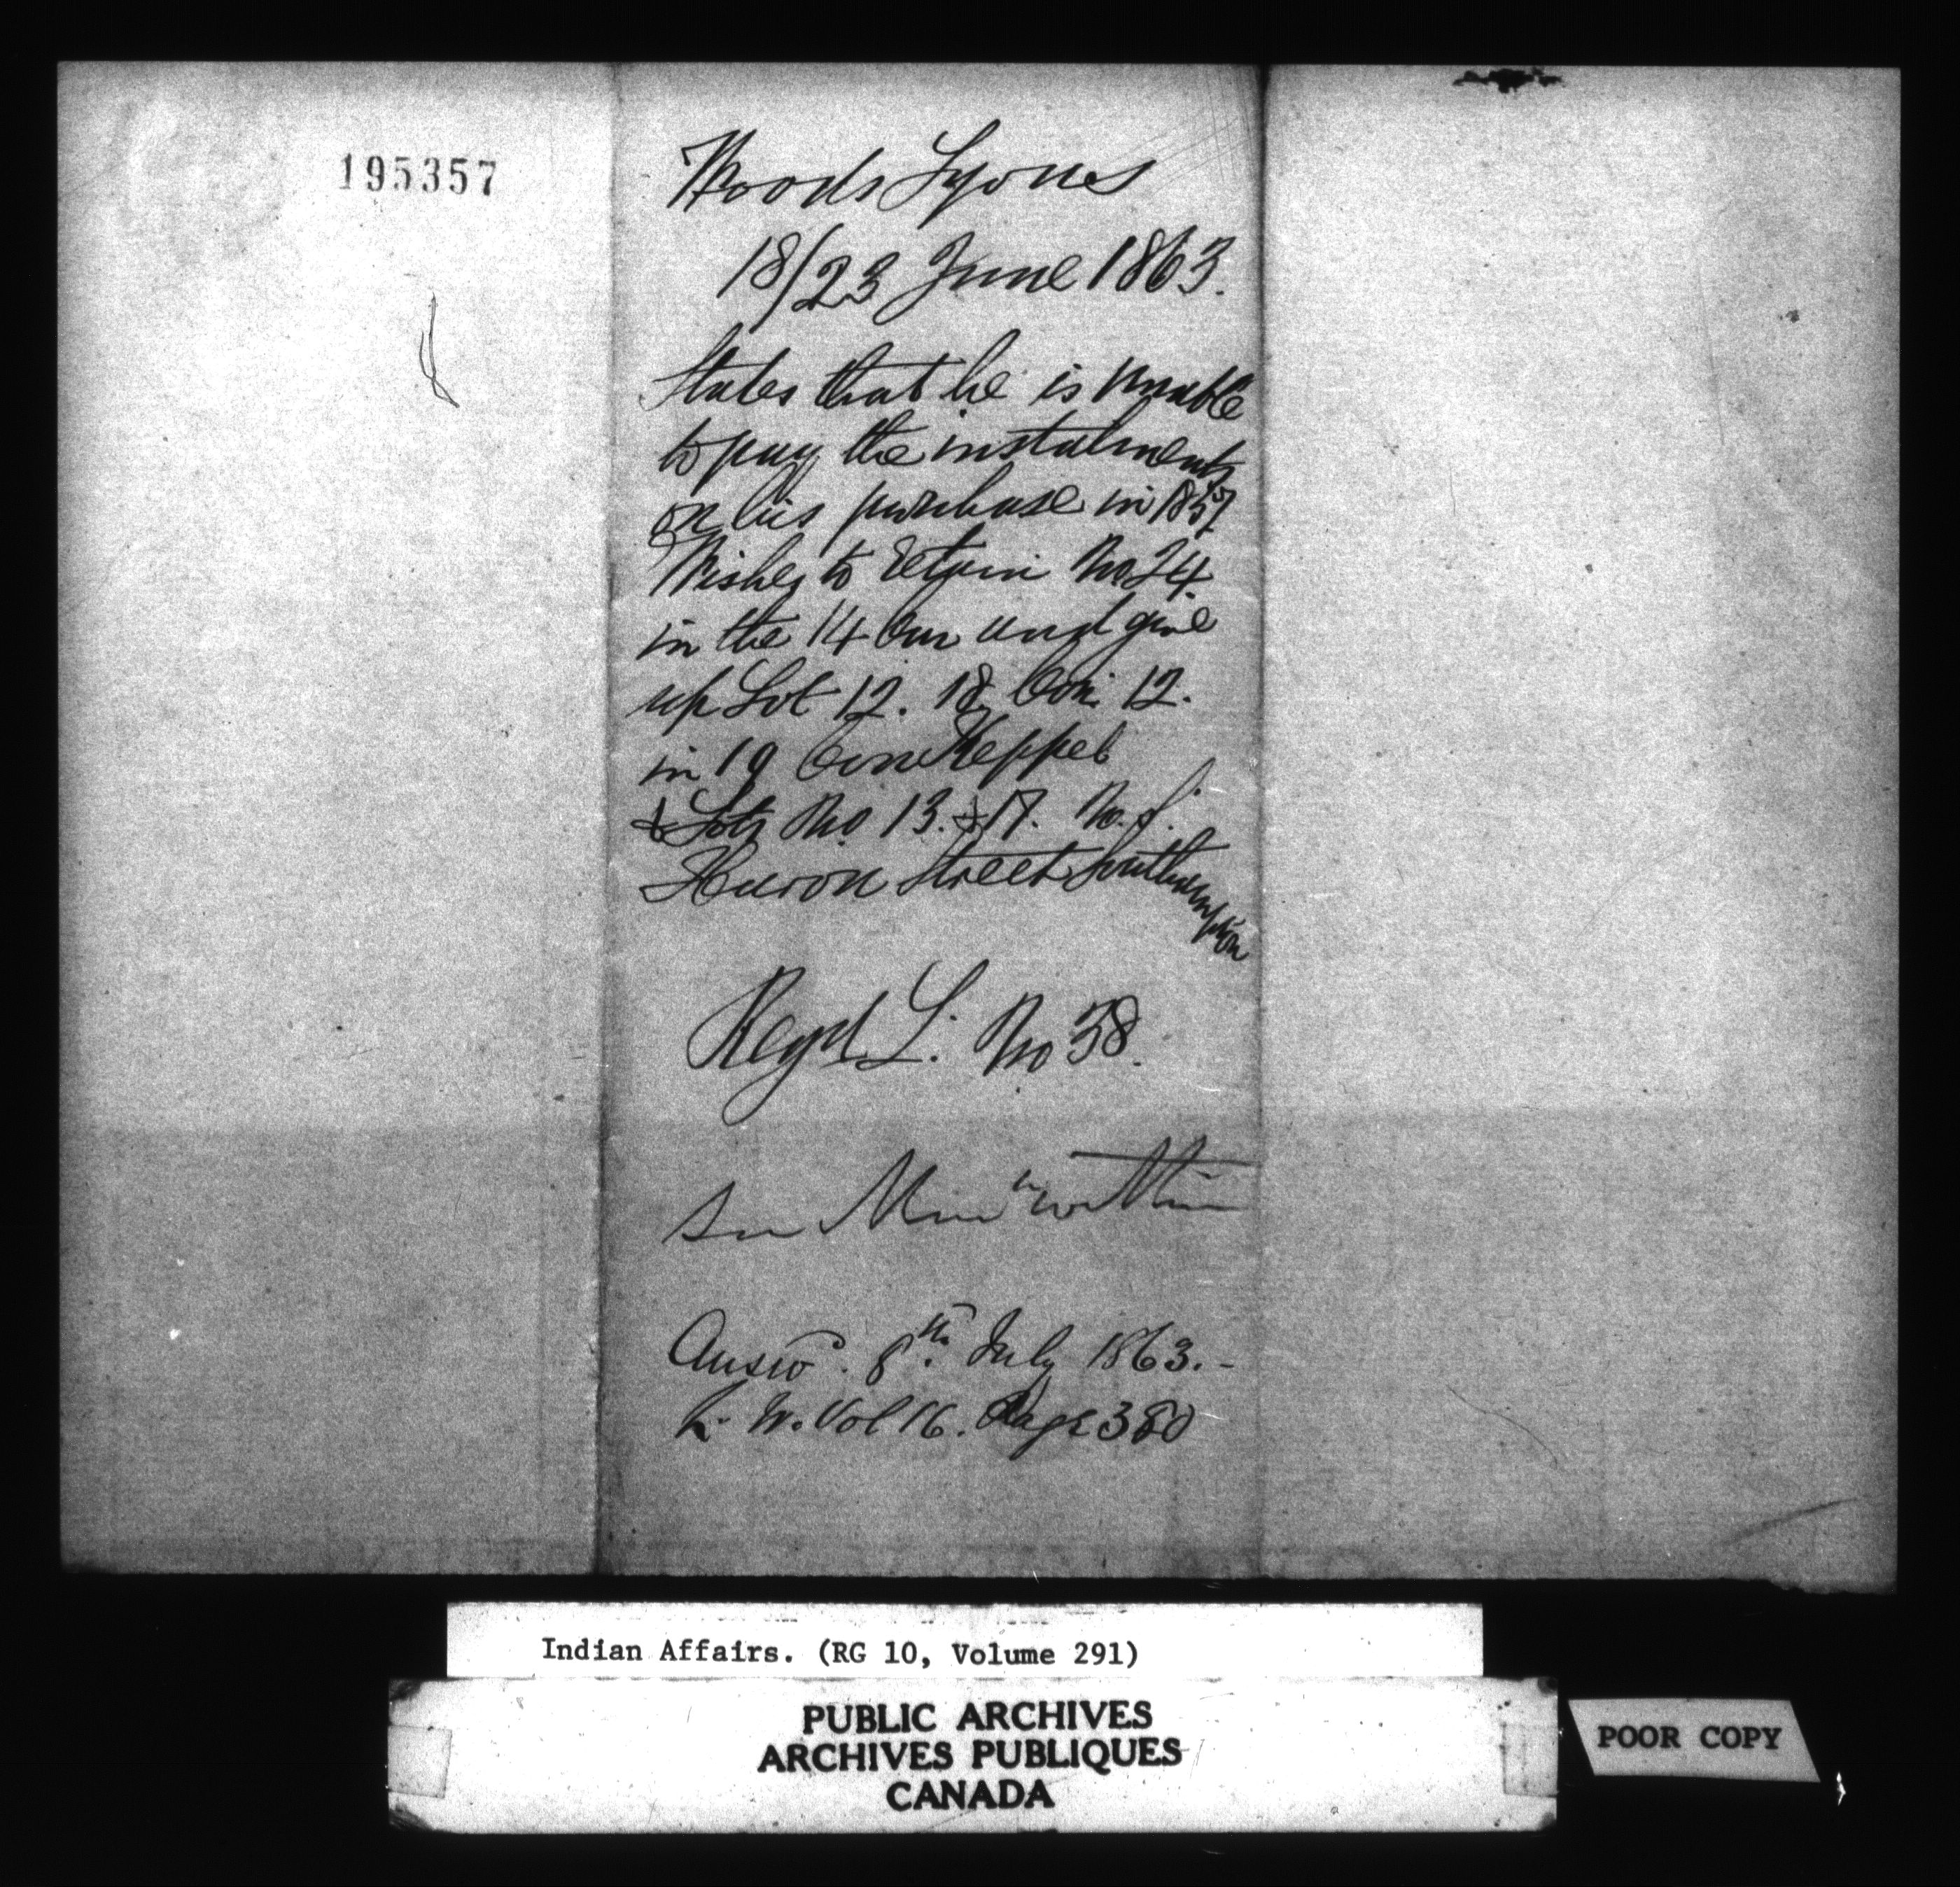 195357
Woods Lyons
18/23 June 1863.
States that he is unable
to pay the instalments
on his purchase in 1857
Wishes to retain No 24
in the 14 Con and give
up Lot 12. 18 Con. 12.
in 19 Con Keppel
& Lots No 13. & 17. No. S.
Huron Street Southampton
Regd L. No 38.
See Minute within
Answd. 8th. July 1863.-
L. W. Vol 16. Page 380
Indian Affairs. (RG 10, Volume 291)
PUBLIC ARCHIVES
ARCHIVES PUBLIQUES
CANADA
POOR COPY